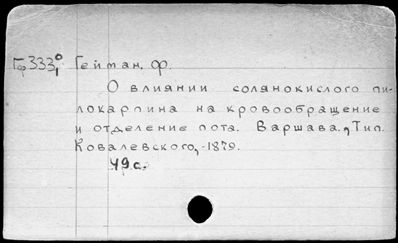 Гф 333⁰₁ Гейман, Ф.
О влиянии солянокислого пи-
локарпина на кровообращение
и отделение пота. Варшава, Тип.
Ковалевского, 1879.
49с.